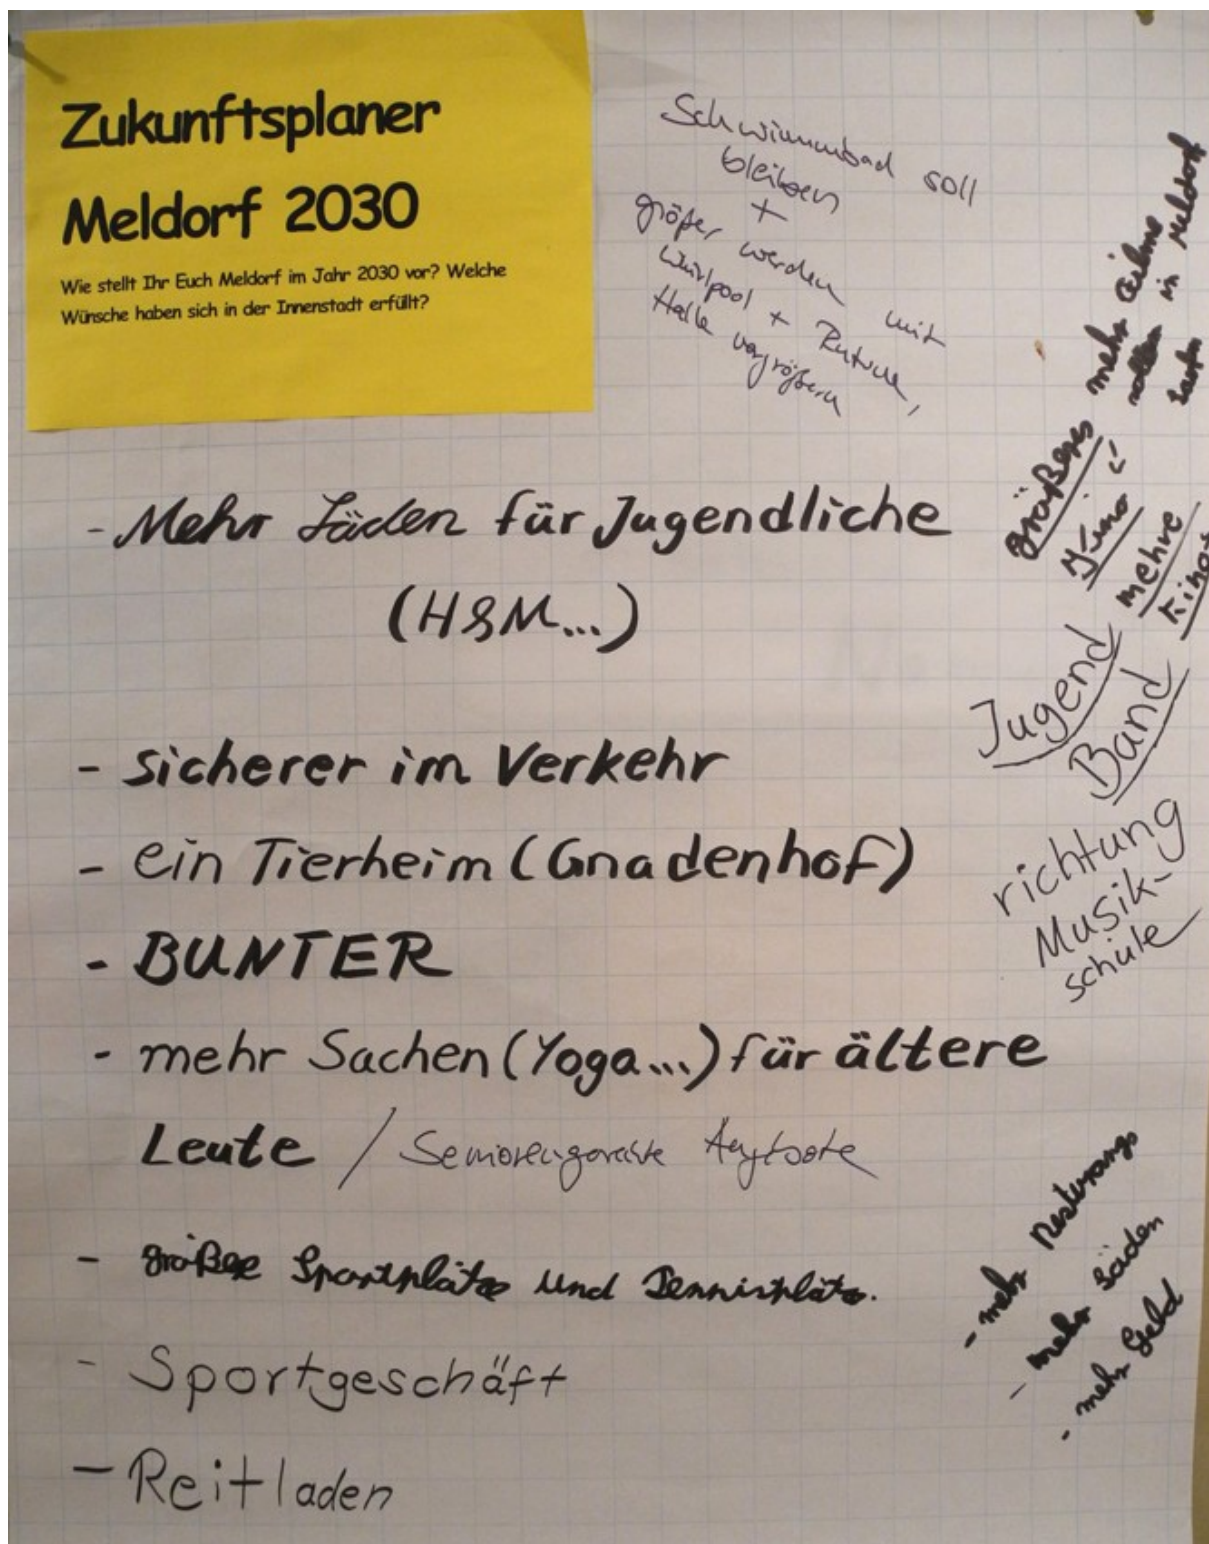 Zukunftsplaner
Meldorf 2030
Wie stellt Ihr Euch Meldorf im Jahr 2030 vor? Welche
Wünsche haben sich in der Innenstadt erfüllt?
Schwimmbad soll
bleiben
+
größer werden mit
Whirlpool + Rutsche,
Halle vergrößern
mehr Filme
sollen in Meldorf
größeres
Kino
mehre
Kinos
- Mehr Läden für Jugendliche
(H&M...)
- sicherer im Verkehr
- ein Tierheim (Gnadenhof)
- BUNTER
- mehr Sachen (Yoga...) für ältere
Leute / Seniorengerechte Angebote
- große Sportplätze und Tennisplätze.
- Sportgeschäft
- Reitladen
Jugend
Band
richtung
Musik-
schule
- mehr Resturangs
- mehr Läden
- mehr Geld